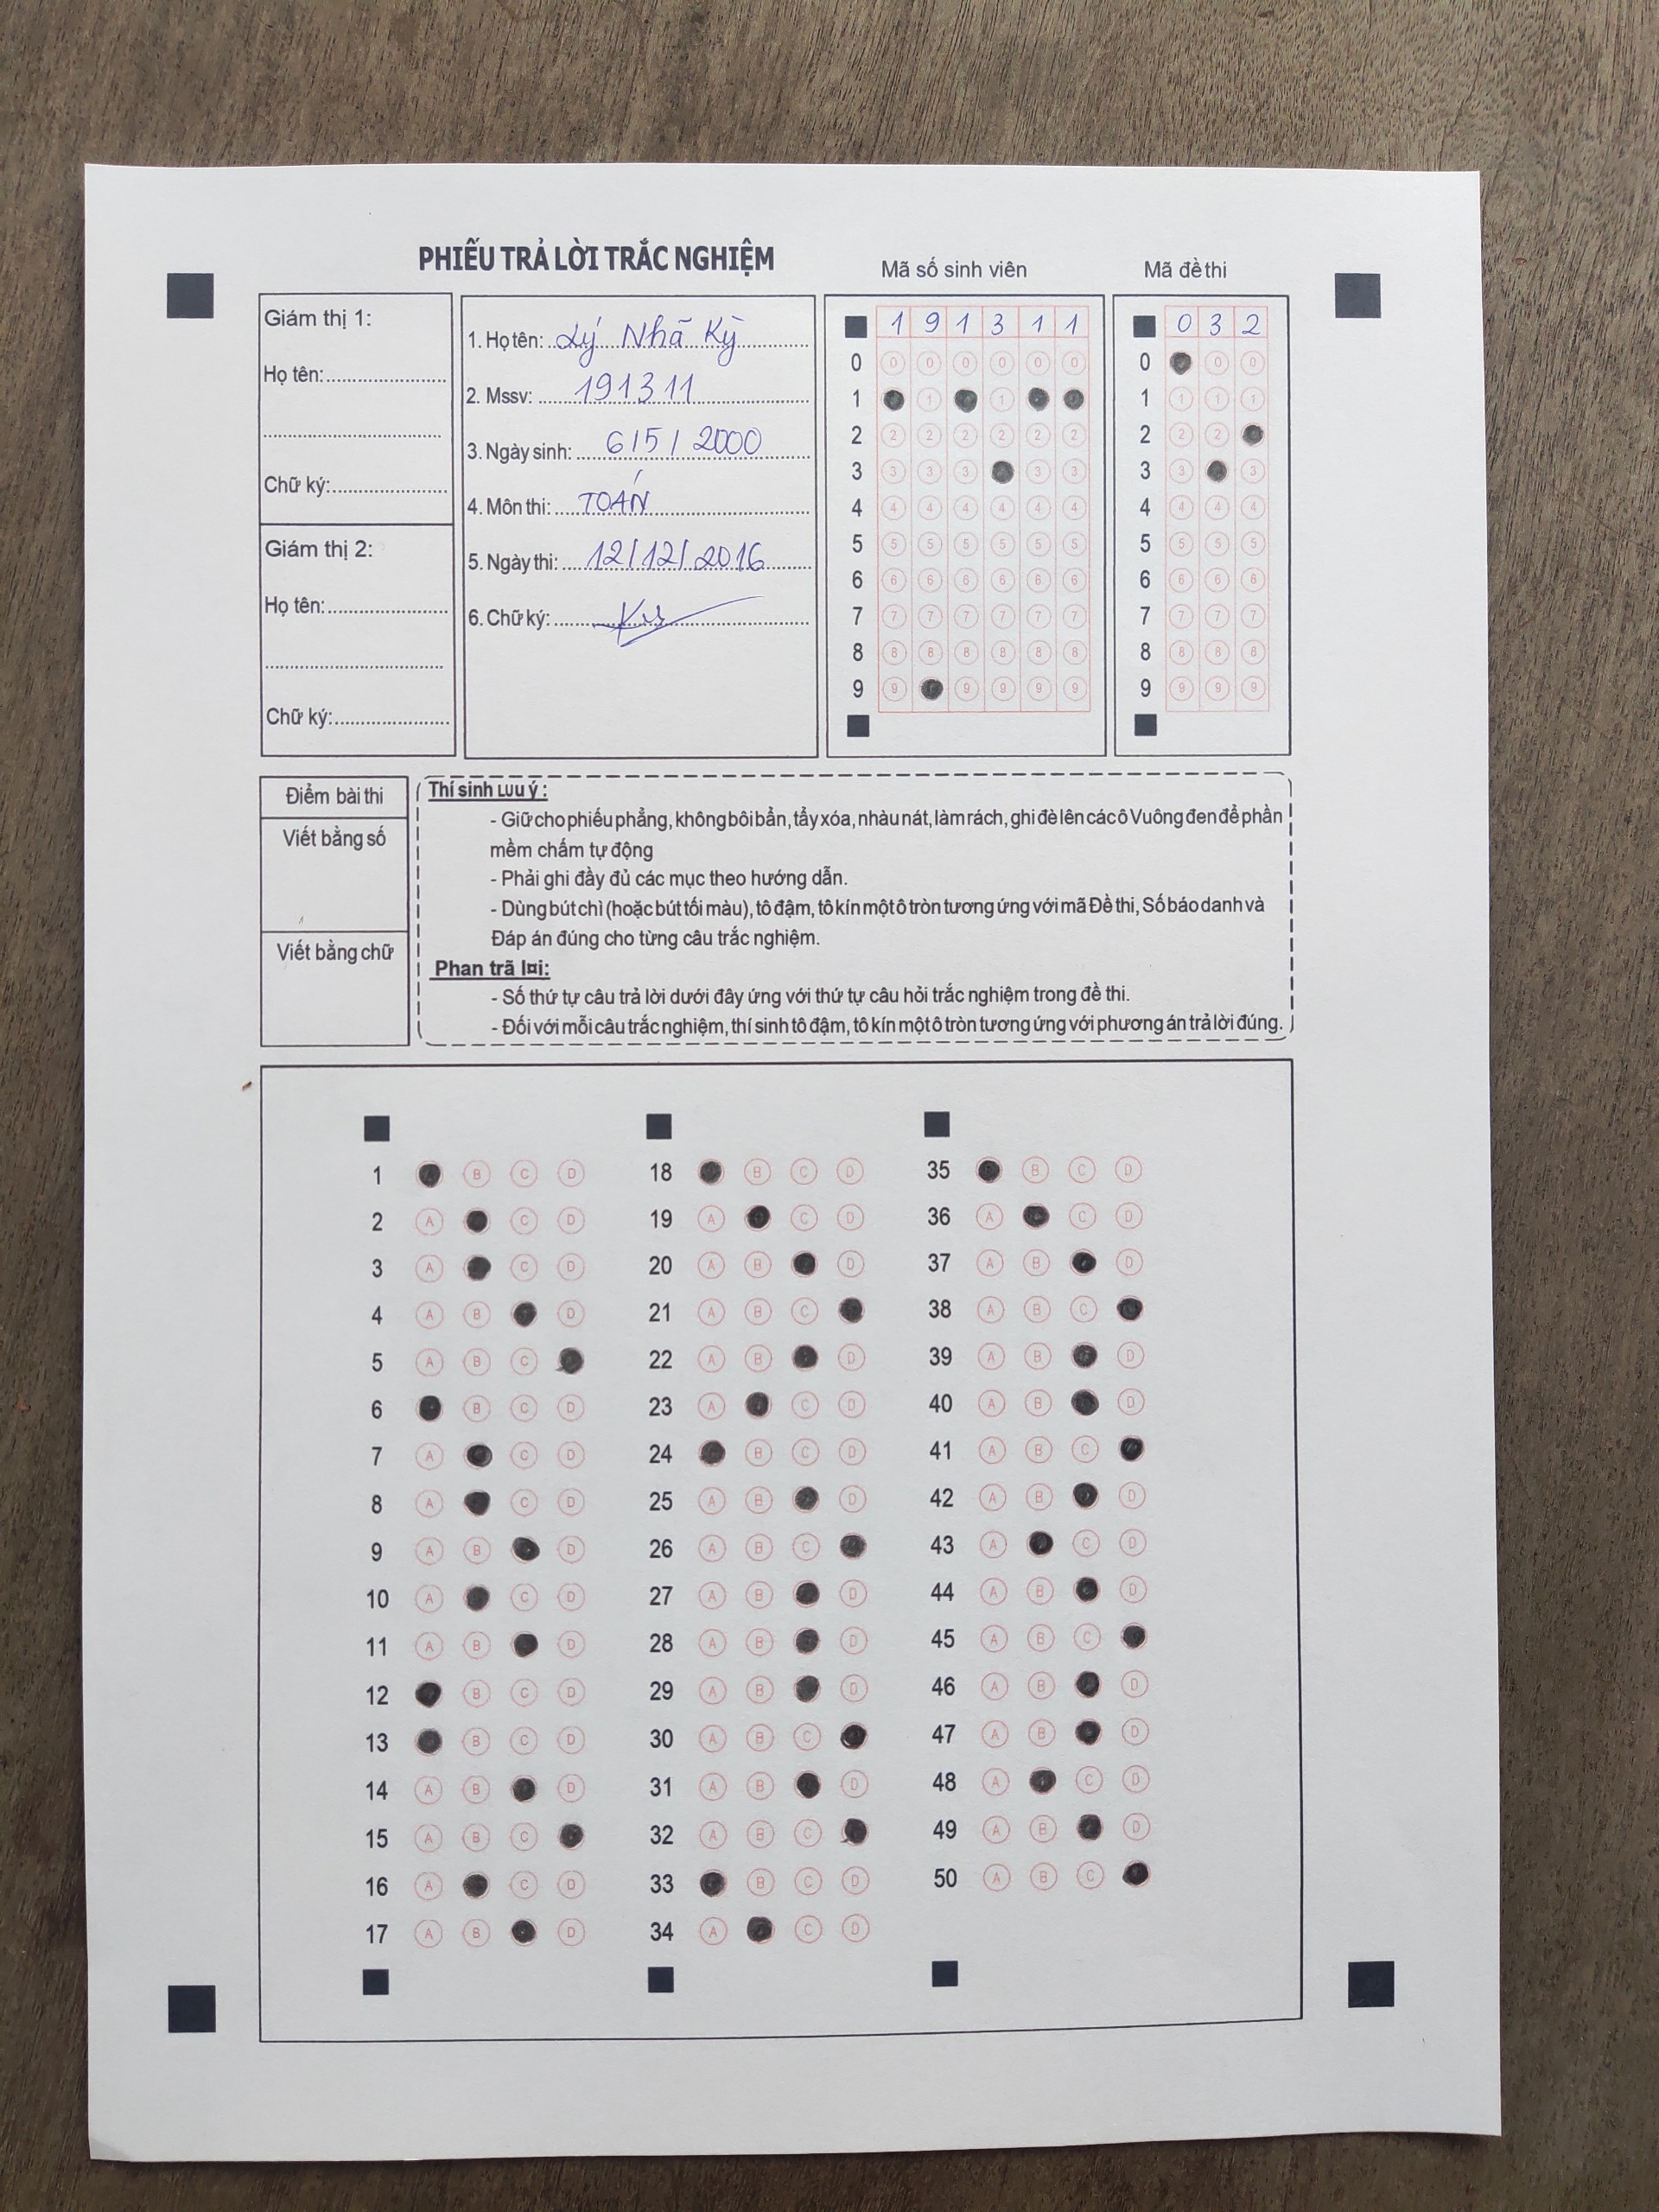 PHIẾU TRẢ LỜI TRẮC NGHIỆM
Mã số sinh viên
Mã đề thi
Giám thị 1:
Họ tên:
Chữ ký:
Giám thị 2:
Họ tên:
Chữ ký:
1. Họ tên: Lý Nhã Kỳ
2. Mssv: 191311
3. Ngày sinh: 6/5/2000
4. Môn thi: TOÁN
5. Ngày thi: 12/12/2016
6. Chữ ký:
1 9 1 3 1 1
0 0 0 0 0 0 0
1 1 1
2 2 2 2 2 2 2
3 3 3 3 3 3
4 4 4 4 4 4 4
5 5 5 5 5 5 5
6 6 6 6 6 6 6
7 7 7 7 7 7 7
8 8 8 8 8 8 8
9 9 9 9 9 9
0 3 2
0 0 0
1 1 1 1
2 2 2
3 3 3
4 4 4 4
5 5 5 5
6 6 6 6
7 7 7 7
8 8 8 8
9 9 9 9
Điểm bài thi
Viết bằng số
Viết bằng chữ
Thí sinh Lưu ý :
- Giữ cho phiếu phẳng, không bôi bẩn, tẩy xóa, nhàu nát, làm rách, ghi đè lên các ô Vuông đen để phần
mềm chấm tự động
- Phải ghi đầy đủ các mục theo hướng dẫn.
- Dùng bút chì (hoặc bút tối màu), tô đậm, tô kín một ô tròn tương ứng với mã Đề thi, Số báo danh và
Đáp án đúng cho từng câu trắc nghiệm.
Phan trã l¤i:
- Số thứ tự câu trả lời dưới đây ứng với thứ tự câu hỏi trắc nghiệm trong đề thi.
- Đối với mỗi câu trắc nghiệm, thí sinh tô đậm, tô kín một ô tròn tương ứng với phương án trả lời đúng.
1 B C D
2 A C D
3 A C D
4 A B D
5 A B C
6 B C D
7 A C D
8 A C D
9 A B D
10 A C D
11 A B D
12 B C D
13 B C D
14 A B D
15 A B C
16 A C D
17 A B D
18 B C D
19 A C D
20 A B D
21 A B C
22 A B D
23 A C D
24 B C D
25 A B D
26 A B C
27 A B D
28 A B D
29 A B D
30 A B C
31 A B D
32 A B C
33 B C D
34 A C D
35 B C D
36 A C D
37 A B D
38 A B C
39 A B D
40 A B D
41 A B C
42 A B D
43 A C D
44 A B D
45 A B C
46 A B D
47 A B D
48 A C D
49 A B D
50 A B C